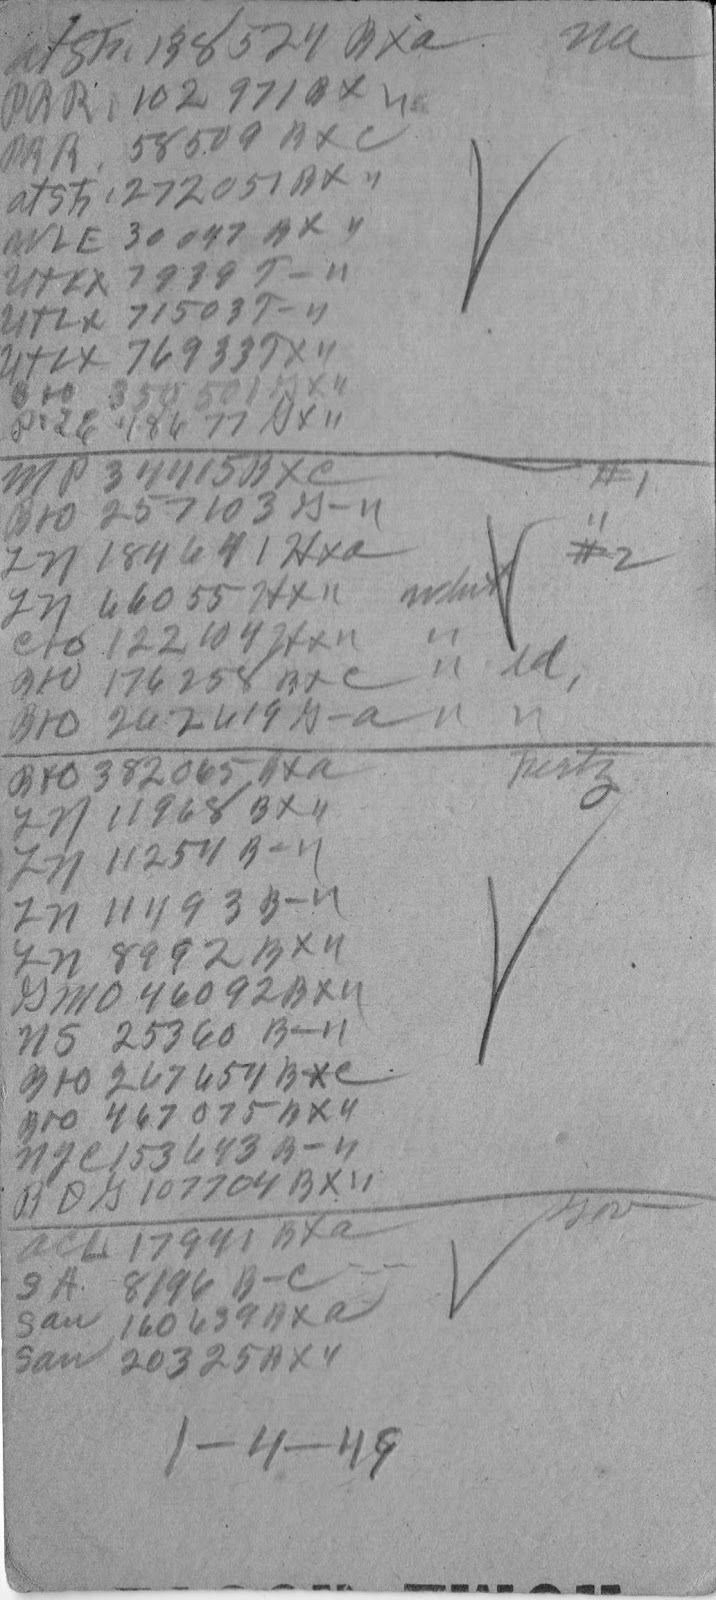 atsf. 138524 BXa na
PRR. 102971 BX "
PRR. 58509 BXC
atsf. 272051 BX "
30047 BX "
utLX 7939 T-"
utLX 71503 T-"
utLX 76933 TX"
B+O 350501 GX"
48677 GX"
MP 34415 BXC #1
B+O 257103 G-" "
LN 184641 HXa #2
LN 66055 HX"
C+O 122104 HX" "
B+O 176258 BXC " ld,
B+O 262619 G-a " "
B+O 382065 BXa Hertz
LN 11968 BX"
LN 11254 B-"
LN 11493 B-"
LN 8992 BX"
GMO 46092 BX"
NS 25360 B-"
B+O 267654 BXC
B+O 467075 BX"
NYC 153643 B-"
RDG 107704 BX"
ACL 17941 BXa
SA 8196 B-C
Sau 160639 BXa
Sau 20325 BX"
1-4-49